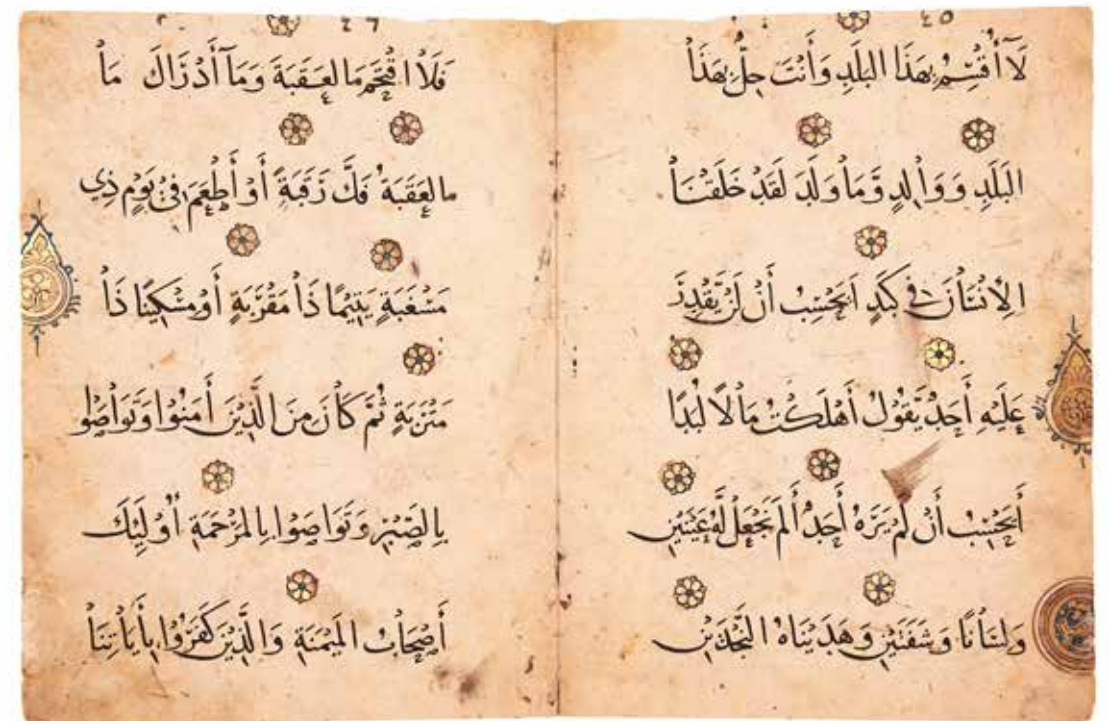 ٤٥
لَآ أُقْسِمُ بِهَذَا البَلَدِ وَأَنْتَ حِلٌّ بِهَذَا
البَلَدِ وَوَالِدٍ وَّمَا وَلَدَ لَقَدْ خَلَقْنَا
الإِنْسَانَ فِي كَبَدٍ أَيَحْسِبُ أَنْ لَنْ يَّقْدِرَ
عَلَيْهِ أَحَدٌ يَّقُولُ أَهْلَكْتُ مَالًا لُبَدًا
أَيَحْسِبُ أَنْ لَمْ يَرَهُ أَحَدٌ أَلَمْ نَجْعَلْ لَّهُ عَيْنَيْنِ
وَلِسَانًا وَشَفَتَيْنِ وَهَدَيْنَاهُ النَّجْدَيْنِ
٤٦
فَلَا اقْتَحَمَ مَالعَقَبَةَ وَمَآ أَدْرَاكَ مَا
مالعَقَبَةُ فَكَّ رَقَبَةً أَوْ أَطْعَمَ فِي يَوْمٍ ذِي
مَسْغَبَةٍ يَتِيْمًا ذَا مَقْرَبَةٍ أَوْ مِسْكِيْنًا ذَا
مَتْرَبَةٍ ثُمَّ كَانَ مِنَ الَّذِيْنَ أَمَنُوْا وَتَوَاصَوْا
بِالصَّبْرِ وَتَوَاصَوْا بِالمَرْحَمَةِ أُوْلَئِكَ
أَصْحَابُ المَيْمَنَةِ وَالَّذِيْنَ كَفَرُوْا بِأَيَاتِنَا